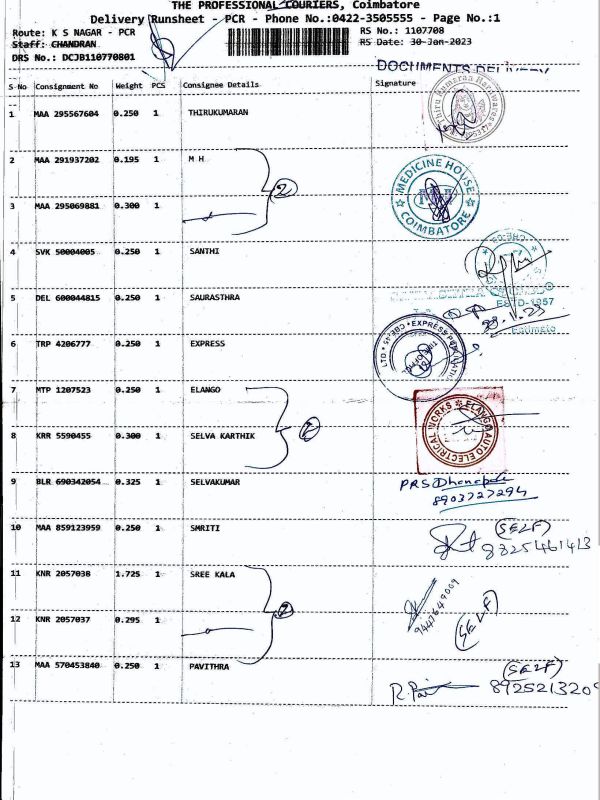 THE PROFESSIONAL COURIERS, Coimbatore
Delivery Runsheet - PCR - Phone No.:0422-3505555 - Page No.:1
Route: K S NAGAR - PCR RS No.: 1107708
Staff: CHANDRAN RS Date: 30-Jan-2023
DRS No.: DCJB110770801
DOCUMENTS DELIVERY
S No Consignment No Weight PCS Consignee Details Signature
1 MAA 295567604 0.250 1 THIRUKUMARAN
Thiru Kumaran Hardwares
2 MAA 291937202 0.195 1 M H
(2)
MEDICINE HOUSE
COIMBATORE
3 MAA 295069881 0.300 1
4 SVK 50004005 0.250 1 SANTHI
5 DEL 600044815 0.250 1 SAURASTHRA
ESTD-1957
6 TRP 4206777 0.250 1 EXPRESS
EXPRESS
7 MTP 1207523 0.250 1 ELANGO
(2)
ELANGO AUTO ELECTRICAL WORKS
8 KRR 5590455 0.300 1 SELVA KARTHIK
9 BLR 690342054 0.325 1 SELVAKUMAR
PRS Dhanapal
8903727294
10 MAA 859123959 0.250 1 SMRITI
(SELF)
8825461413
11 KNR 2057038 1.725 1 SREE KALA
(2)
9447649009
(SELF)
12 KNR 2057037 0.295 1
13 MAA 570453840 0.250 1 PAVITHRA
(SELF)
8925213209